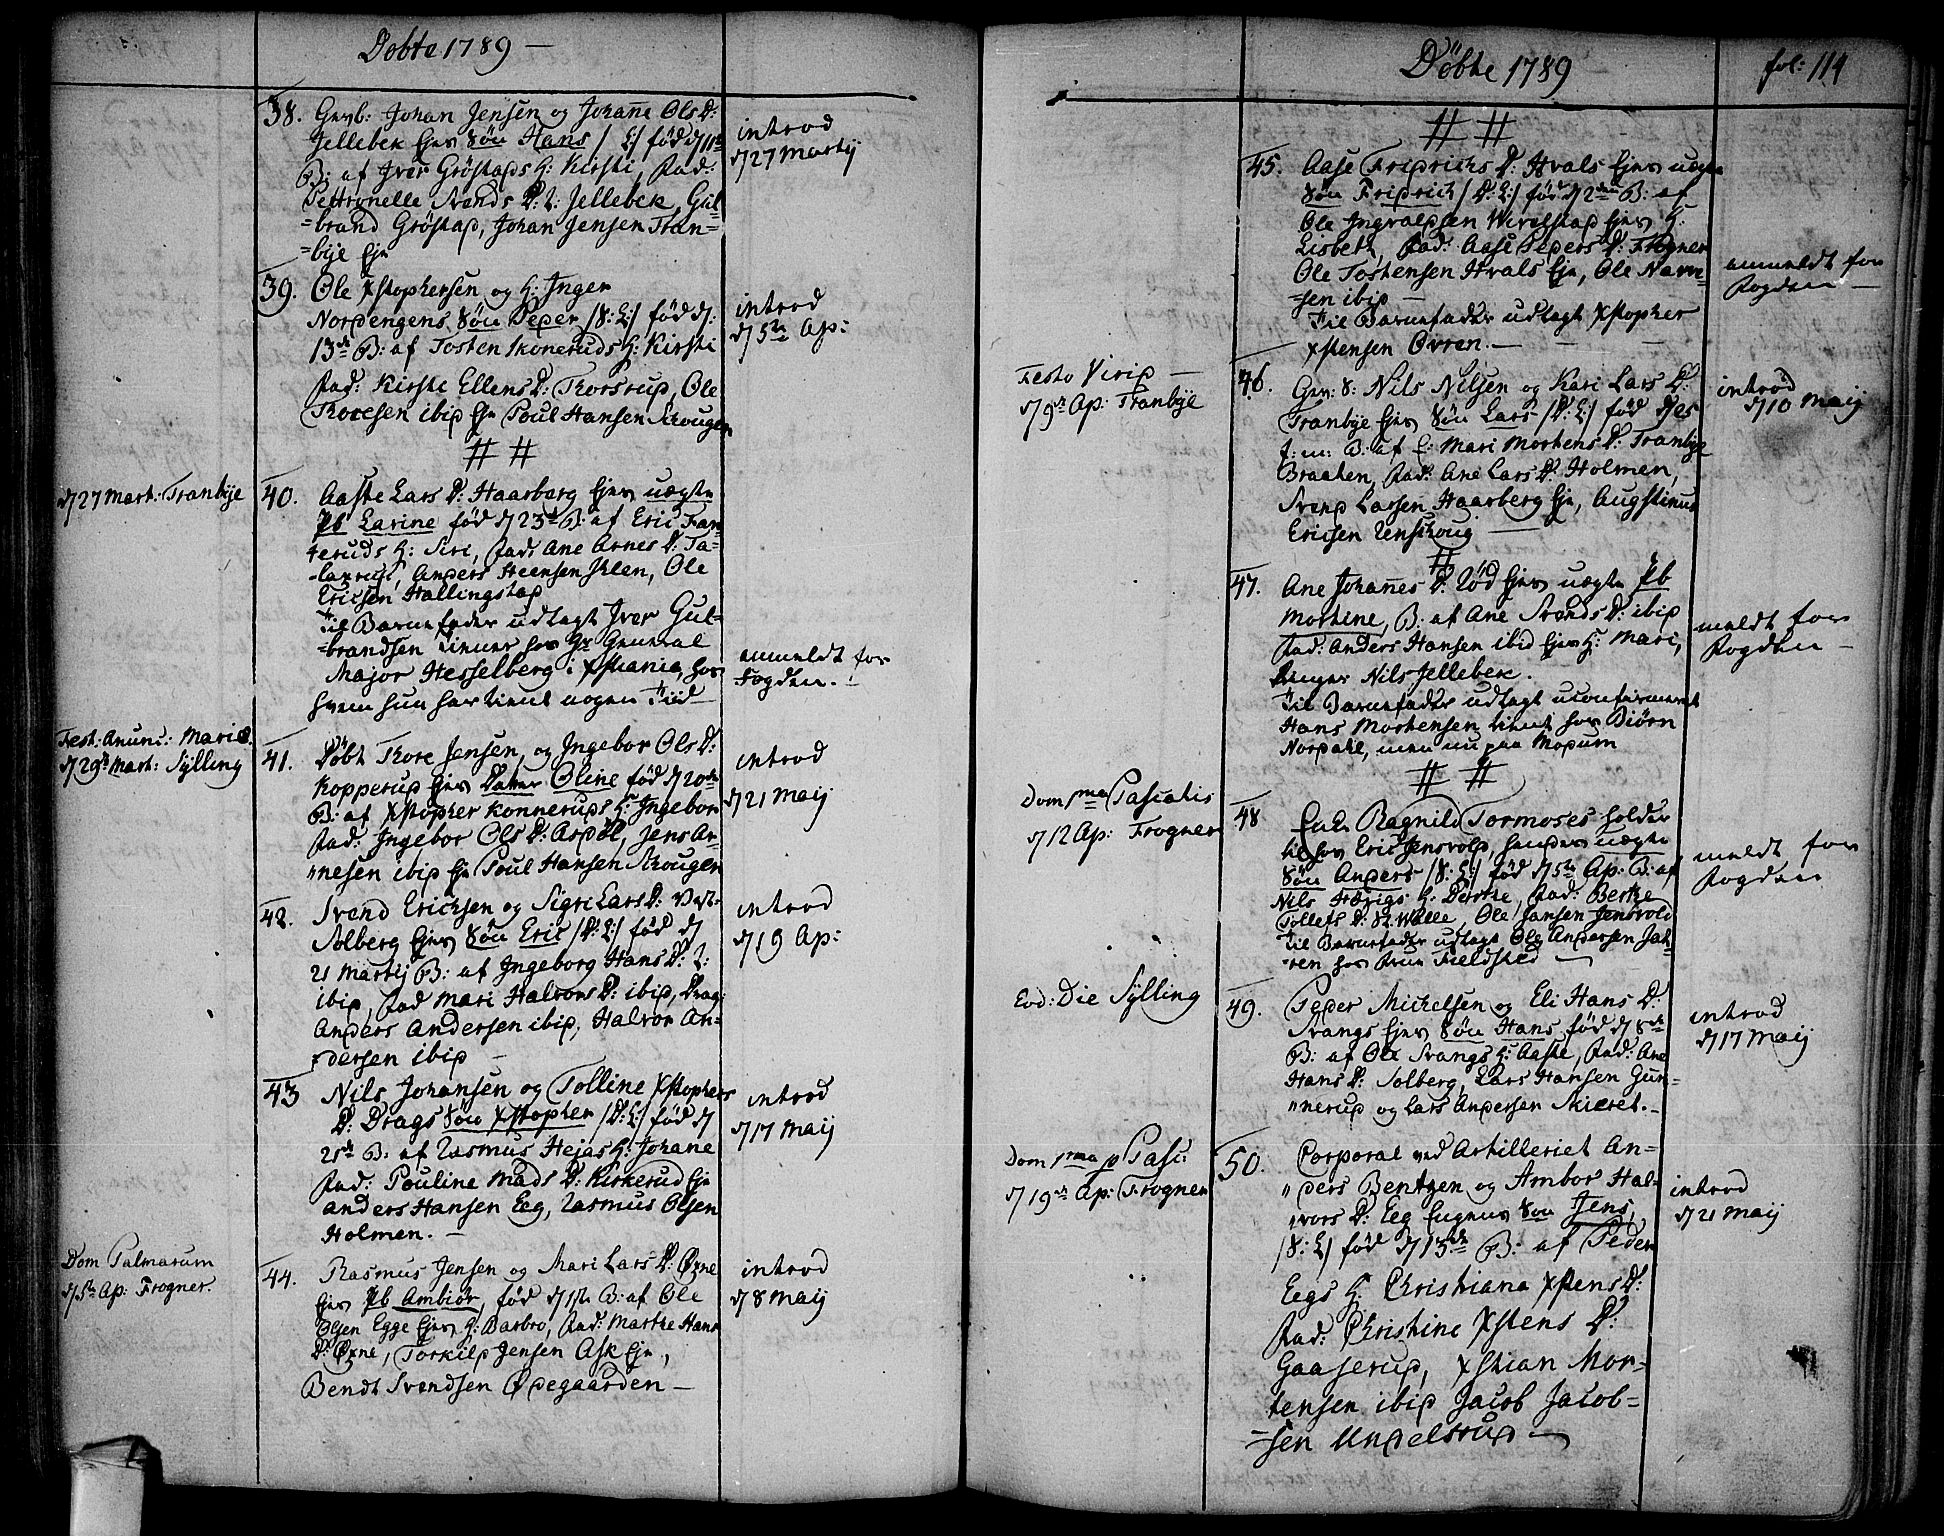 Døbte 1789 —
38. Grvb: Johan Jensen og Johañe Ols D:
Jellebek Ejes Søn Hans / E:/ fød d 11te
B: af Iver Gröstads H: Kirsti, Fad:
Pettronelle Svends D: Jellebek, Gul-
=brand Gröstad, Johan Jensen Tran-
=bye Eje
introd
d 27 Martij
39. Ole Xstophersen og H: Inger
Nordengens Søn Peder /S: E:/ fød d:
13de B: af Tosten Skoneruds H: Kirsti
Fad: Kirste Ellens D: Thorsrud, Ole
Thoresen ibid Eje Poul Hansen Skougen
introd
d 5te Ap:
# #
d 27 Mart: Tranbye
40. Aaste Lars D: Haarberg Ejes uægte
Pb Larine fød d 23de B: af Eric Fan-
teruds H: Siri, Fad: Ane Arnes D:
Anders Steensen Ihlen, Ole
Ericsen Hallingstad
Til Barnefader udlagt Iver Gul-
=brandsen tiener hos Hr General
Major Hesselberg i Xstiania, hos
hvem hun har tient nogen Tiid —
anmeldt for
Fogden. —
Fest: Anunc: Mariæ
d 29de Mart: Sylling
41. Døbt Thore Jensen, og Ingebor Ols D:
Kopperud Ejes Datter Oline fød d 20de
B: af Xstopher Konneruds H: Ingebor
Fad: Ingebor Ols D: Asdøl, Jens Ar-
"nesen ibid Eje Poul Hansen Skougen
introd
d 21 Maij
42. Svend Erichsen og Sigri Lars D: Vest-
Solberg Ejes Søn Eric /D: E:/ fød d
21 Martij B: af Ingeborg Hans D:
ibid, Fad Mari Halvors D: ibid, Drag:
Anders Andersen ibid, Halvor An-
dersen ibid —
introd
d 19 Ap:
43 Nils Johansen og Tolline Xstophers
D: Drags Søn Xstopher /D: E:/ fød d
21de B: af Rasmus Hejas H: Johane
Fad: Pauline Mads D: Kirkerud Eje
Anders Hansen Eeg, Rasmus Olsen
Holmen. —
introd
d 17 Maij
Dom Palmarum
d 5te Ap: Frogner.
44. Rasmus Jensen og Mari Lars D: Øxne
Ejes Pb Ambiör, fød d 1ste B: af Ole
Olsen Egge Ejes H: Barbro, Fad: Marthe Hans
D: Øxne, Torkild Jensen Ask Eje,
Bendt Svendsen Ødegaarden —
introd
d 8 Maij
Döbte 1789
fol: 114
# #
45. Aase Fridrichs D: Hvals Ejes uægte
Søn Fridrich / D: E:/ fød d 2den B: af
Ole Ingvaldsen Wivelstad Ejes H:
Lisbeth, Fad: Aase Peders D: Frogner
Ole Tostensen Hvals Eje, Ole
=sen ibid —
Til Barnefader udlagt Xstopher
Xstensen Ovren. —
anmeldt for
Fogden —
Festo Virid —
d 9de Ap: Tranbye
46. Grv: S: Nils Nilsen og Kari Lars D:
Tranbye Ejes Søn Lars /D: E:/ fød d 25
f: m: B: af E: Mari Mortens D: Tranbye
Braaten, Fad: Ane Lars D: Holmen,
Svend Larsen Haarberg Eje, Augstinus
Ericsen Renskoug —
introd
d 10 Maij
#
47. Ane Johañes D: Rød Ejes uægte Pb
Mortine, B: af Ane Svends D: ibid
Fad: Anders Hansen ibid Ejes H: Mari,
Nils Jellebek.
Til Barnefader udlagt uconfirmeret
Hans Mortensen, tient hos Biörn
Nordahl, men nu paa Modum
meldt for
Fogden —
# #
Dom 1ma Paschatis
d 12 Ap: Frogner
48 Enke Ragnild Tormoses holder
til hos Eric Jensvold, hendes uægte
Søn Anders /S: E:/ fød d 5te Ap: B: af
Nils H: Dorthe, Fad: Berthe
Tollefs D: Walle, Ole Hansen Jensvold
Til Barnefader udlagt Ole Andersen
hos Fieldsted —
meldt for
Fogden
Eod: Die Sylling
49. Peder Michelsen og Eli Hans D:
Svangs Ejes Søn Hans, fød d 8de
B: af Ole Svangs H: Aaste, Fad: Ane
Hans D: Solberg, Lars Hansen Gun-
"nerud og Lars Andersen Skieret. —
introd
d 17 Maij
Dom 1ma p Pasc:
d 19de Ap: Frogner
50. Corporal ved Artilleriet An-
"ders Bentzen og Ambor Hal-
"vors D: Eeg Eugnes Søn Jens,
/S: E:/ fød d 13de B: af Peder
Eegs H: Christiana Xstens D:
Fad: Christine Xstens D:
Gaaserud, Xstian Mor-
tensen ibid Jacob Jacob-
=sen Undelsrud —
introd
d 21 Maij